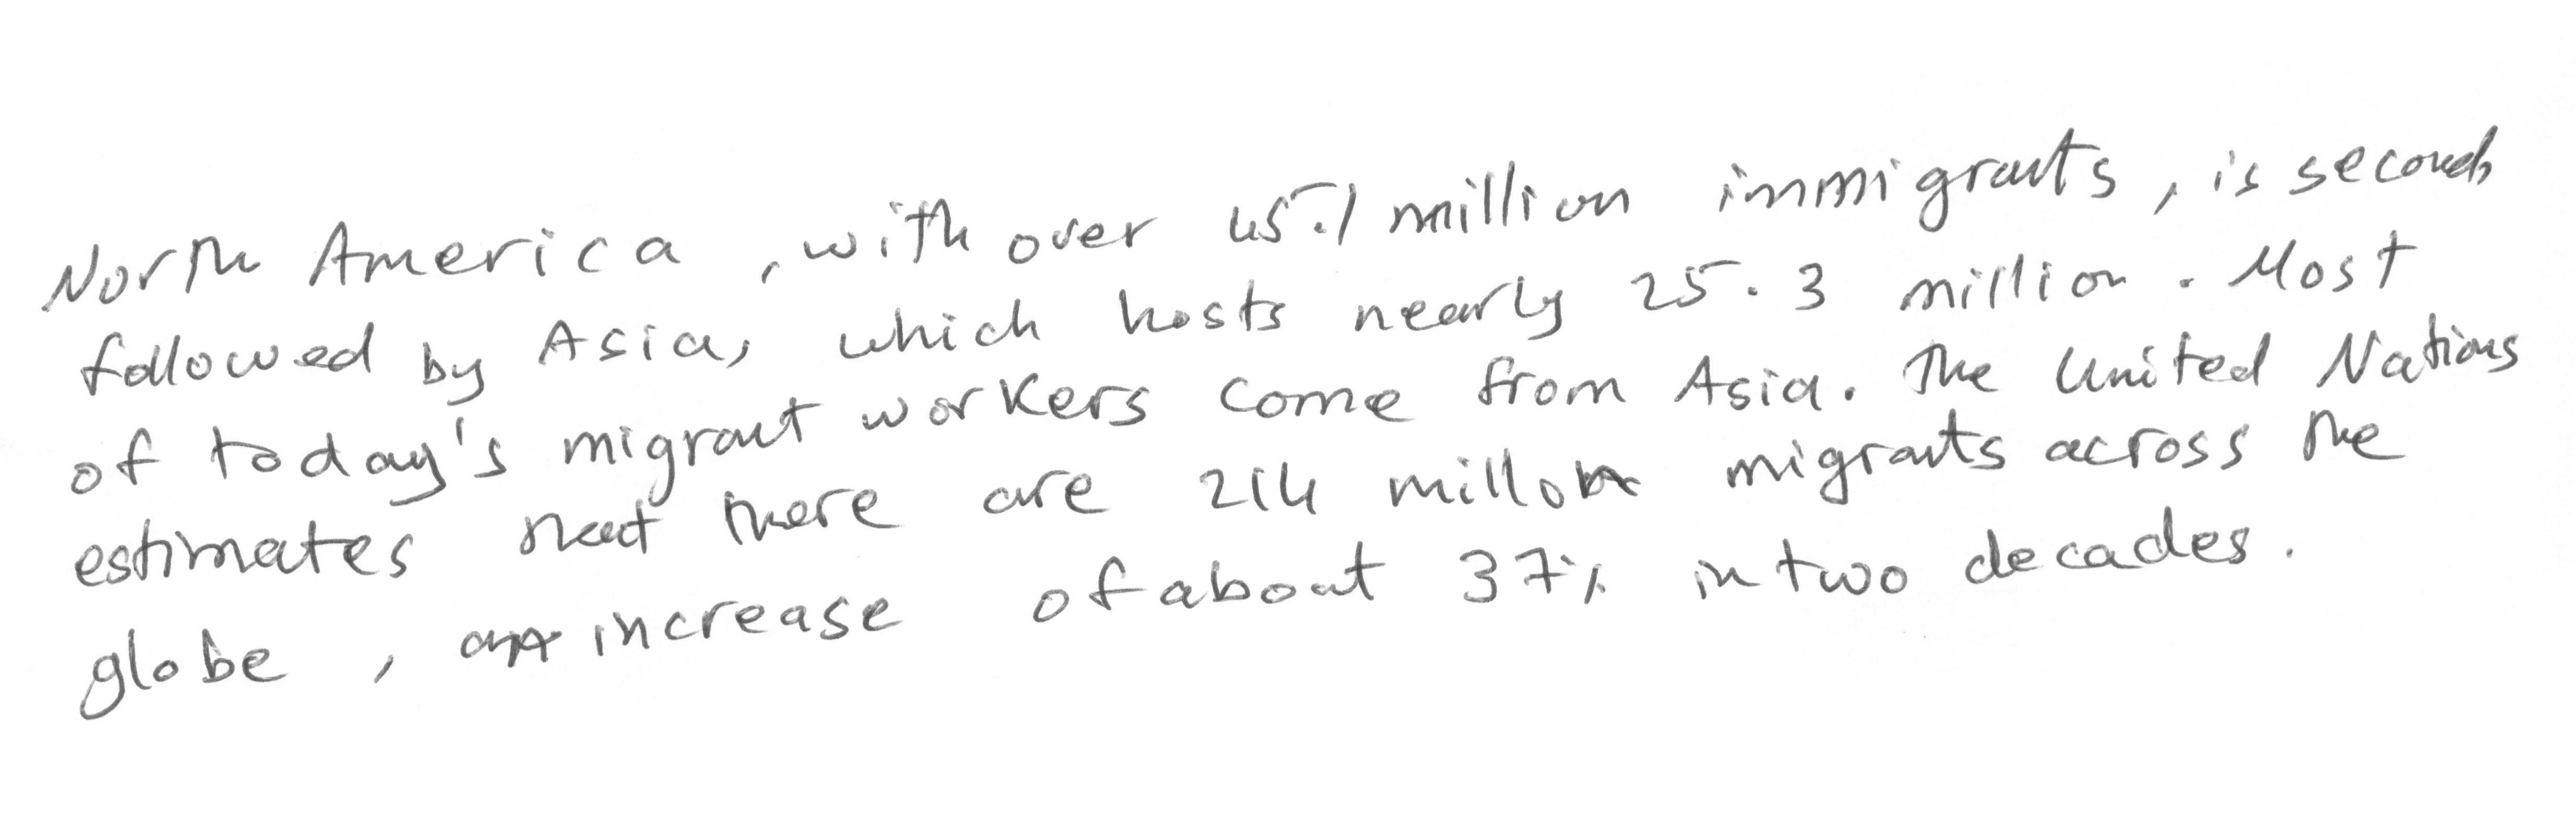 North America, with over 45.1 million immigrants, is second,
followed by Asia, which hosts nearly 25.3 million. Most
of today's migrant workers come from Asia. The United Nations
estimates that there are 214 millon migrants across the
globe, an increase of about 37% in two decades.